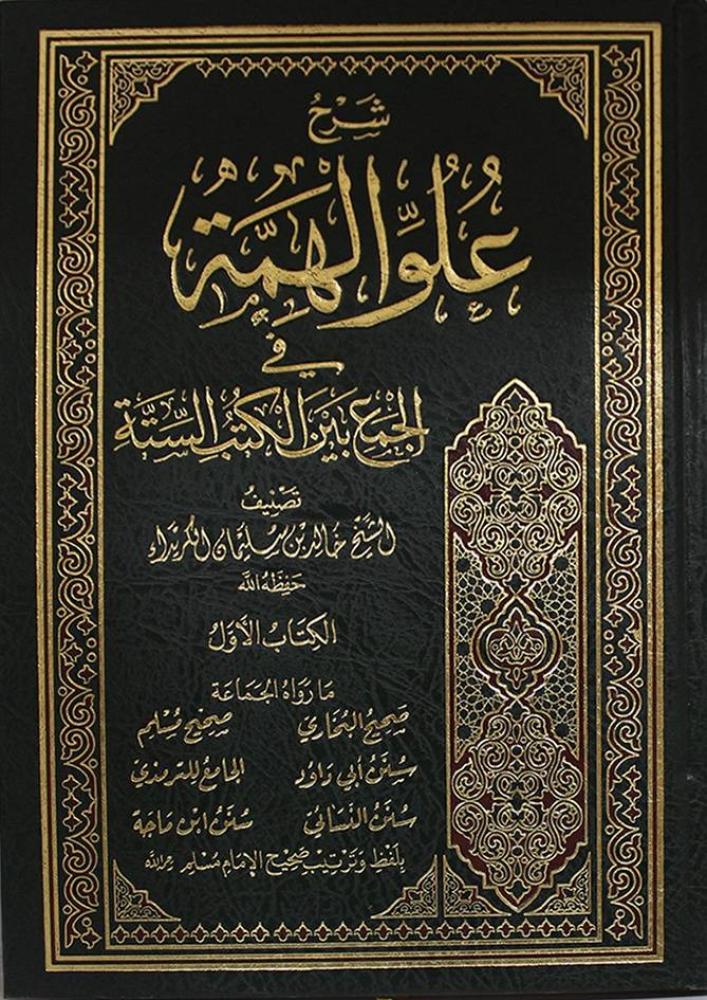 شَرْحُ
عُلُوِّ الهِمَّةِ
في
الجَمْعِ بَيْنَ الكُتُبِ السِّتَّةِ
تَصْنِيفُ
الشَّيْخِ خَالِد بْن سُلَيْمَان
حَفِظَهُ اللَّه
الكِتَابُ الأَوَّلُ
مَا رَوَاهُ الجَمَاعَة
صَحِيحُ البُخَارِي صَحِيحُ مُسْلِم
سُنَنُ أَبِي دَاوُد الجَامِعُ لِلتِّرمِذِيّ
سُنَنُ النَّسَائِي سُنَنُ ابْن مَاجَة
بِلَفْظِ وَتَرْتِيبِ صَحِيحِ الإِمَامِ مُسْلِم رحمه الله